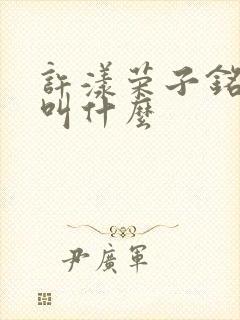 許漾荣子銘
叫什麼
尹廣軍